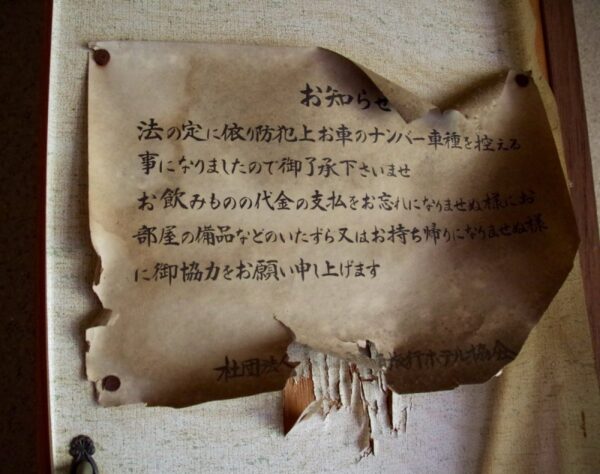 お知らせ
法の定に依り防犯上お車のナンバー車種を控える
事になりましたので御了承下さいませ
お飲みものの代金の支払をお忘れになりませぬ様にお
部屋の備品などのいたずら又はお持ち帰りになりませぬ様
に御協力をお願い申し上げます
社団法人 旅行ホテル協会